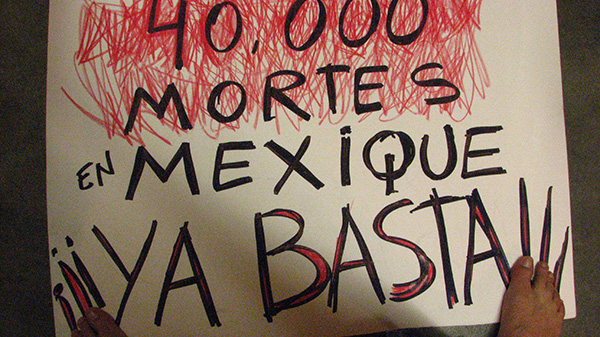 40,000
MORTES
EN MEXIQUE
¡¡¡YA BASTA!!!